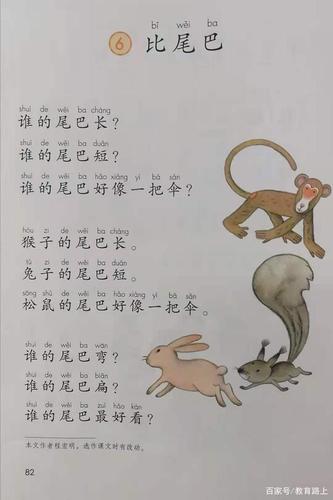 bǐ wěi ba
6 比尾巴
shuí de wěi ba cháng
谁的尾巴长？
shuí de wěi ba duǎn
谁的尾巴短？
shuí de wěi ba hǎo xiàng yì bǎ sǎn
谁的尾巴好像一把伞？
hóu zi de wěi ba cháng
猴子的尾巴长。
tù zi de wěi ba duǎn
兔子的尾巴短。
sōng shǔ de wěi ba hǎo xiàng yì bǎ sǎn
松鼠的尾巴好像一把伞。
shuí de wěi ba wān
谁的尾巴弯？
shuí de wěi ba biǎn
谁的尾巴扁？
shuí de wěi ba zuì hǎo kàn
谁的尾巴最好看？
本文作者程宏明，选作课文时有改动。
82
百家号/教育路上